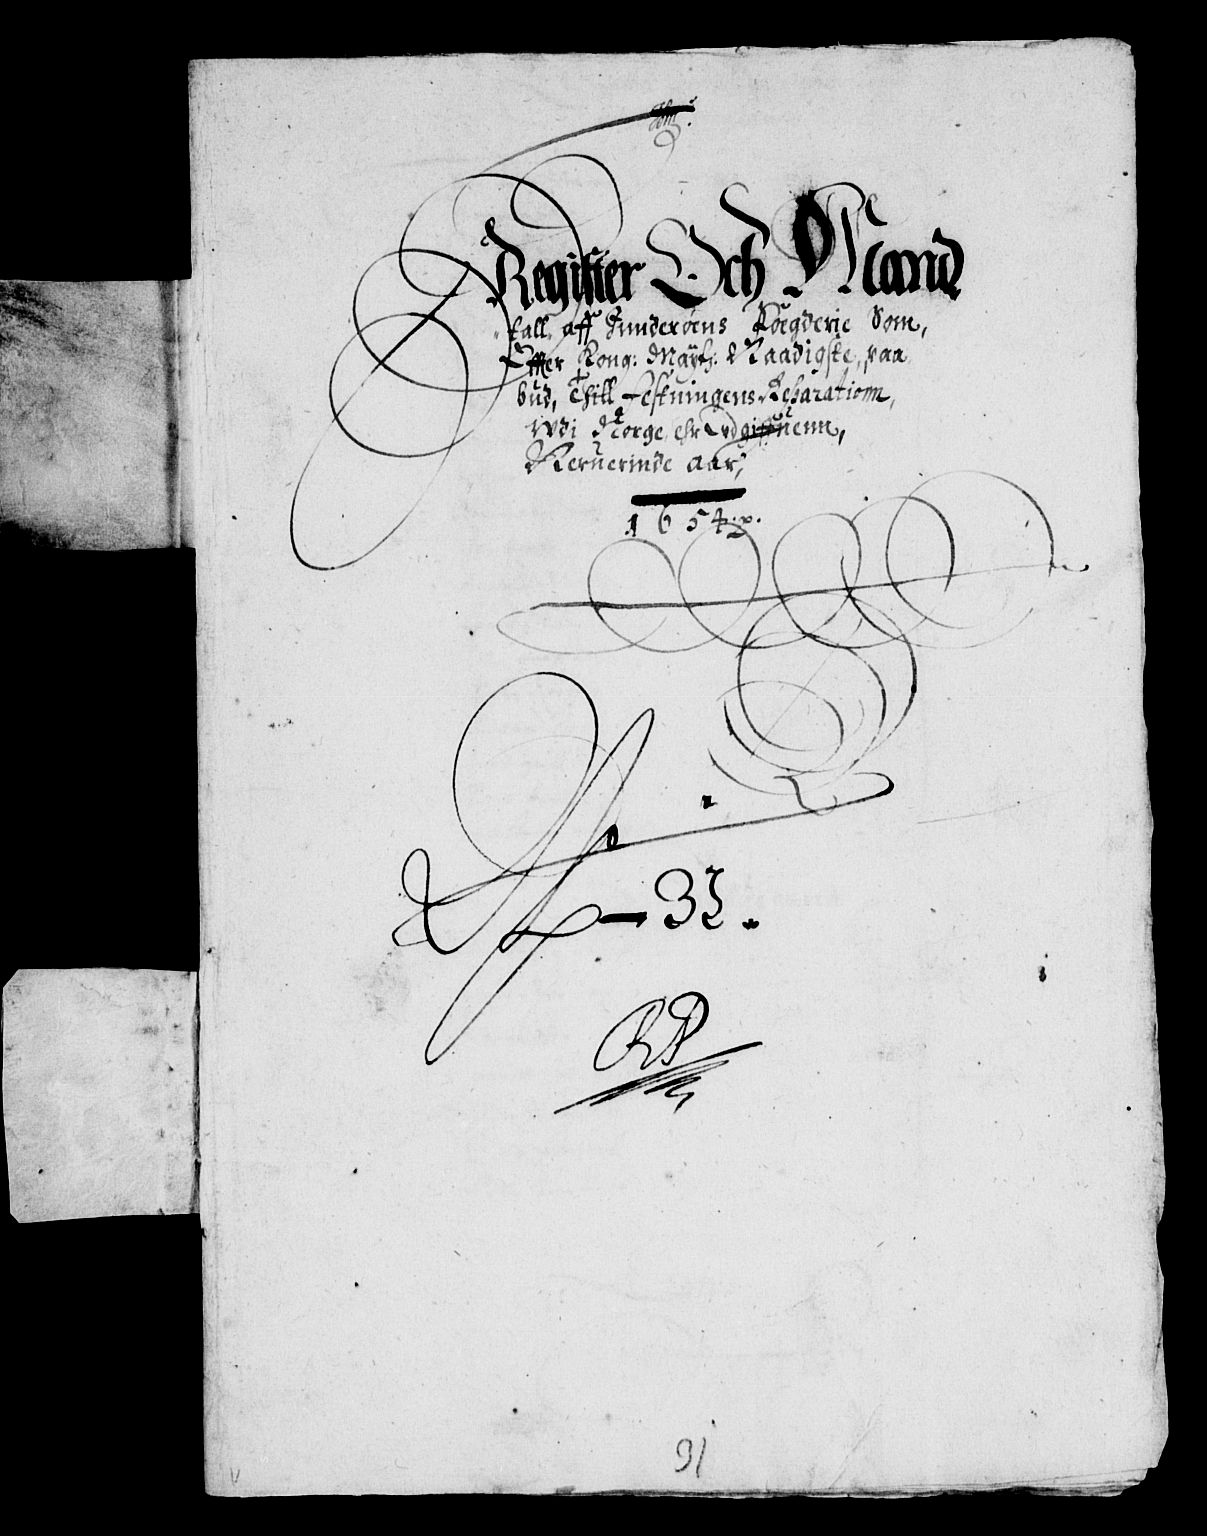 Register Och Mand
tall, aff Inderøens Foegderie Som,
Effter Kong: Maÿtz: Naadigste, paa
bud, Thill Festningens Reparationn,
Vdi Norge, ehr Vdgiffuenn,
Neruerinde Aar,
1654.
33.
91